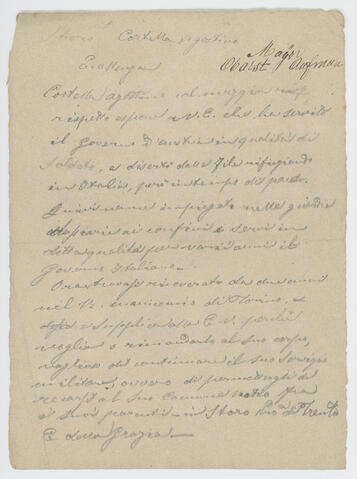 Storo Cortella Agostino
Magg.
Obarst Aufman
Eccellenza
Cortella Agostino col maggior
rispetto espone a V.E. che ha servito
il Governo d'Austria in qualità di
Soldato, e disertò dalle file rifugiando
in Italia, però in tempo di pace.
Quivi venne impiegato nelle guardie
ai confini e servì in
detta qualità per varii anni il
Governo Italiano.
Ora trovasi ricoverato da due anni
nel R. manicomio di Torino, e
supplica la E.V. perché
voglia o rimandarlo al suo corpo,
vogliono di continuare il suo servizio
militare, ovvero di permettergli di
recarsi al suo Comune fra
i suoi parenti in Storo di Trento
E della Grazia